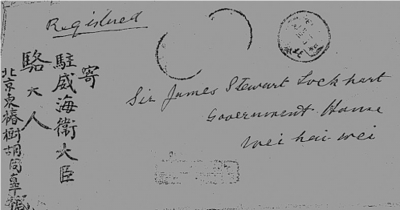 Registered
寄
駐威海衛大臣
駱大人
北京東椿樹胡同
Sir James Stewart Lockhart
Government House
Wei hai wei